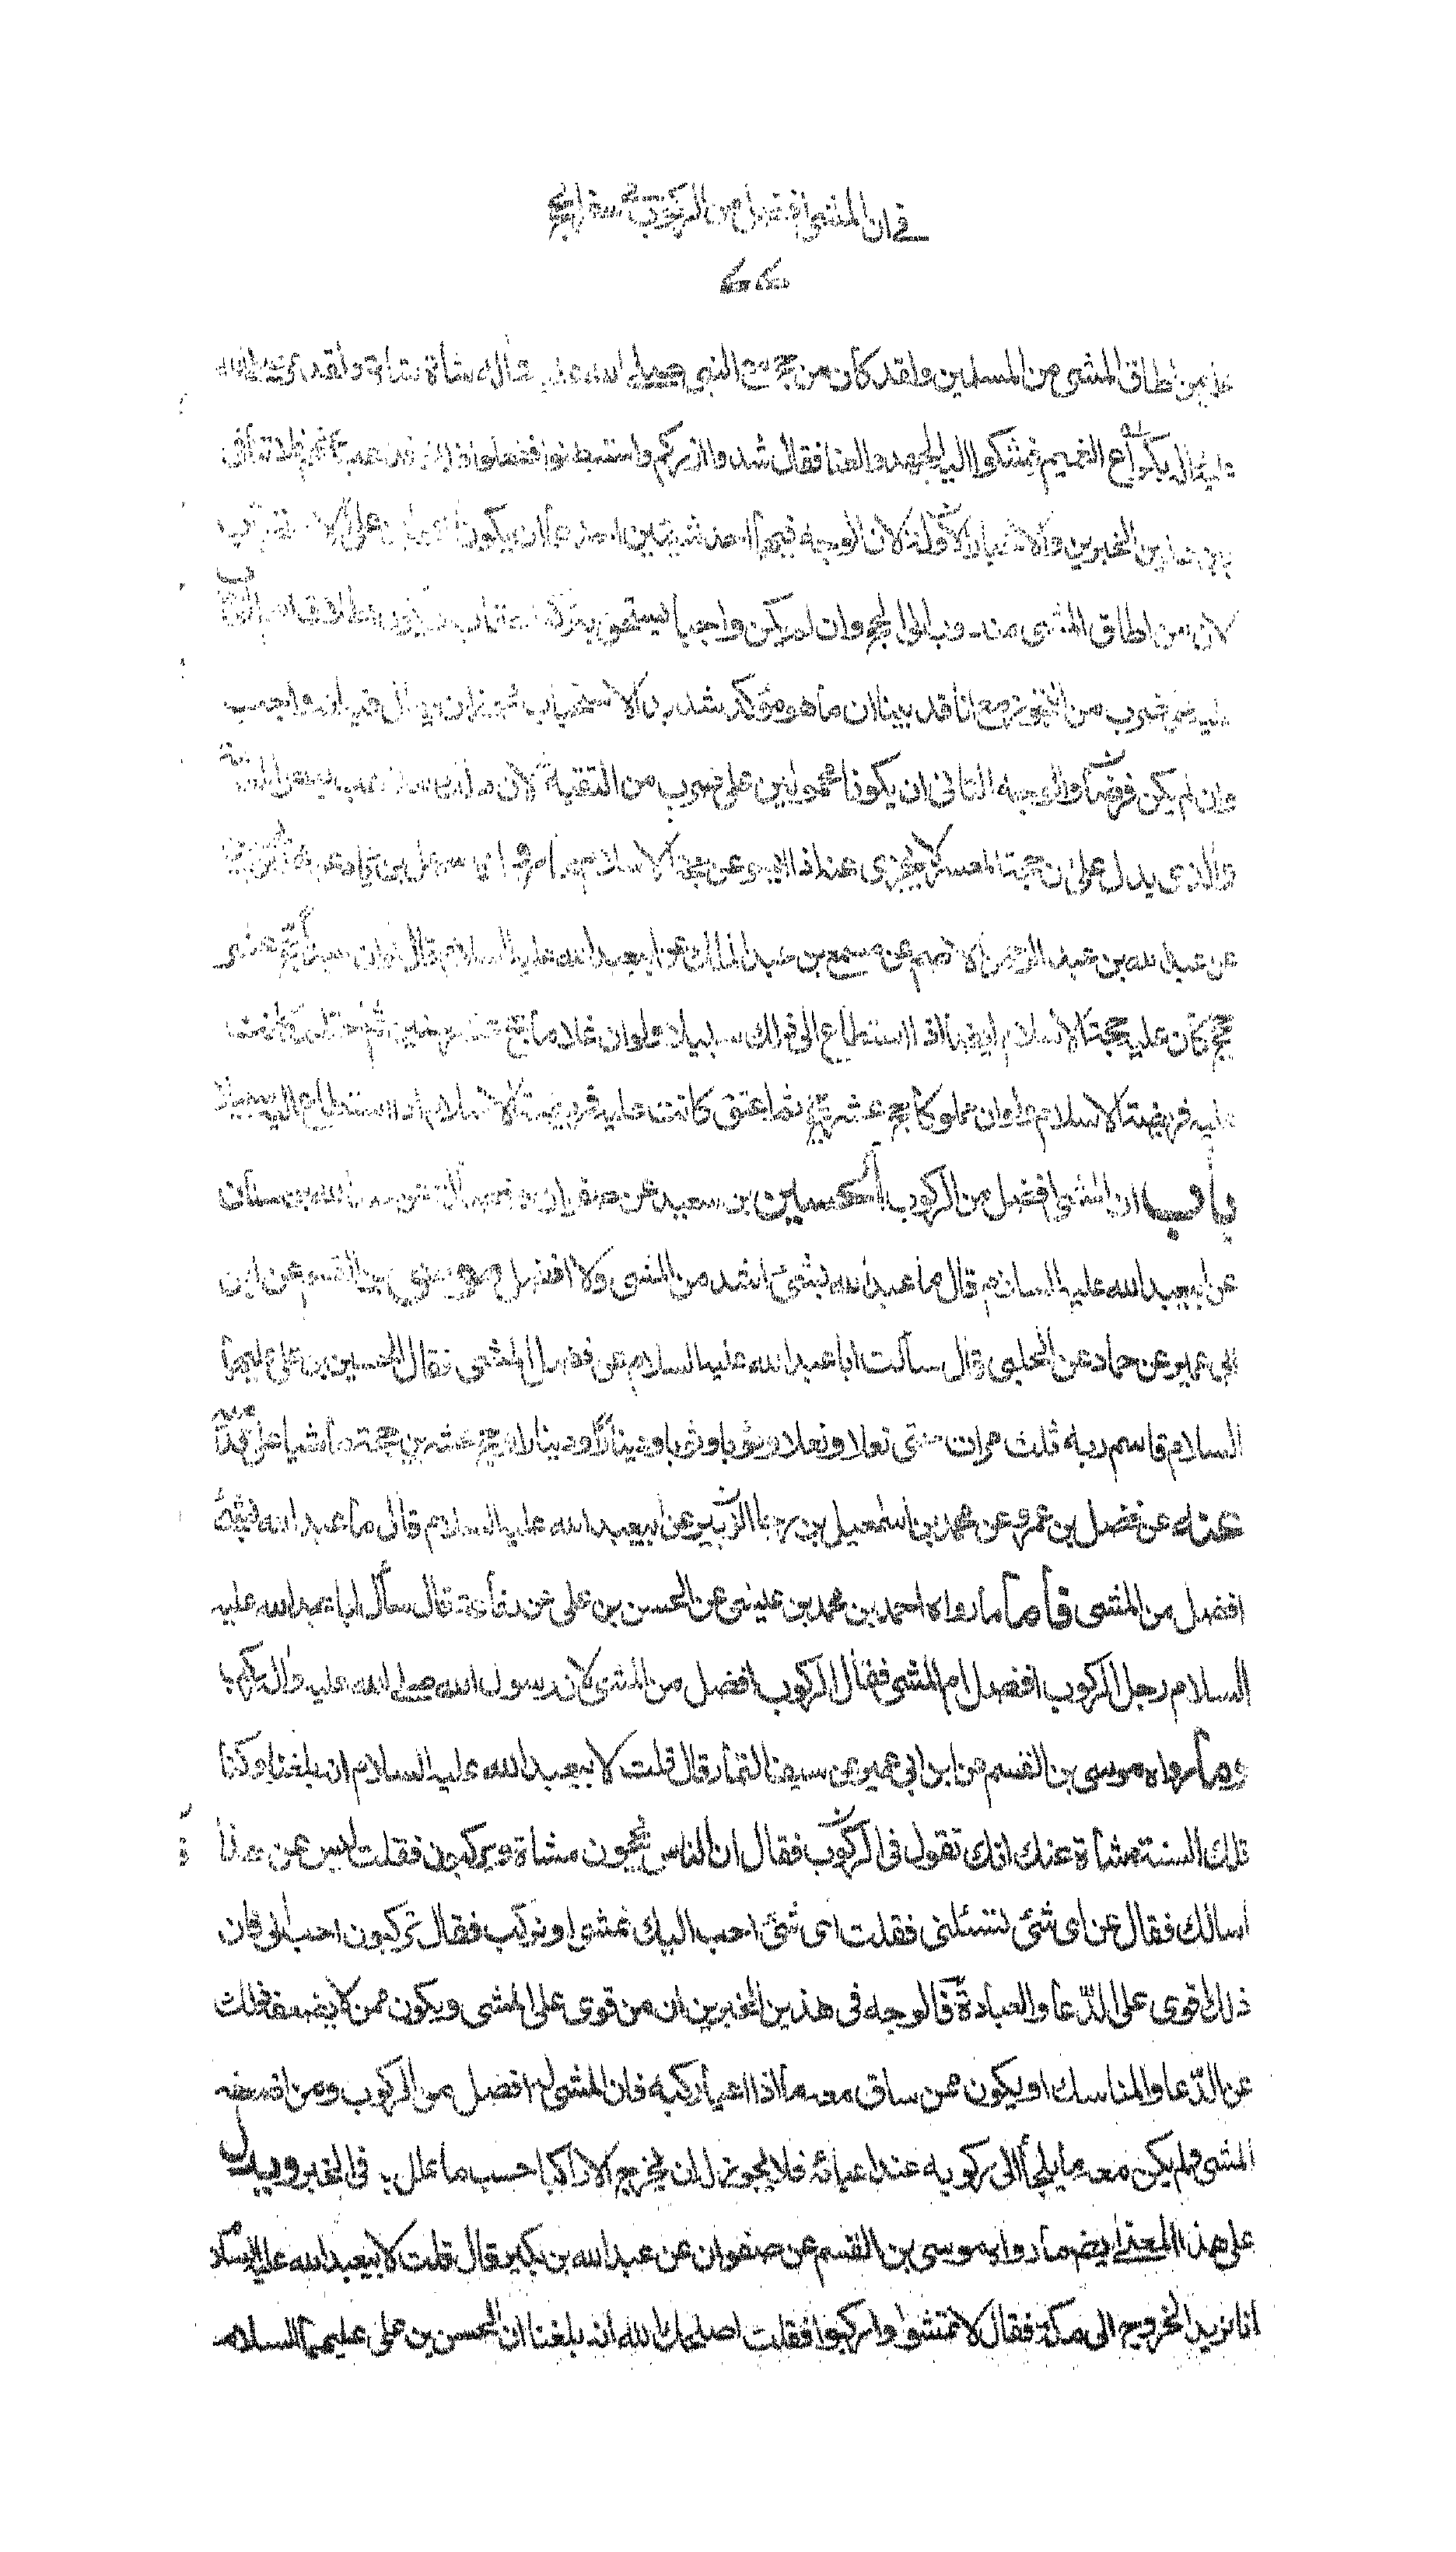 في ان المشي افضل من الركوب في سفر الحج
علي من اطاق المشي من المسلمين ولقد كان من حج مع النبي صلى الله عليه وآله مشاة ولقد مر صلى الله
عليه وآله بكراع الغميم فشكوا اليه الجهد والعنا فقال شدوا ازركم واستبطنوا ففعلوا ذلك فذهب عنهم فلا تنافى
بين هذين الخبرين والاخبار الاولة لان الوجه فيهما احد شيئين احدهما ان يكونا محمولين على الاستحباب
لان من اطاق المشى مندوب الى الحج وان لم يكن واجبا يستحق بتركه العقاب ويكون اطلاق اسم الوجوب
عليه على ضرب من التجوز مع انا قد بينا ان ما هو مؤكد شديد الاستحباب يجوز ان يقال فيه انه واجب
وان لم يكن فرضا والوجه الثانى ان يكونا محمولين على ضرب من التقية لان ذلك مذهب بعض العامة
والذى يدل على ان حجة المعسر لا يجزى عنه اذا ايسر عن حجة الاسلام ما رواه سهل بن زياد عن محمد بن الحسن
عن عبد الله بن عبد الرحمن الاصم عن مسمع بن عبد الملك عن ابيعبد الله عليه السلام قال لو ان عبدا حج عشر
حجج كان عليه حجة الاسلام ايضا اذا استطاع الى ذلك سبيلا ولو ان غلاما حج عشر سنين ثم احتلم كانت
عليه فريضة الاسلام ولو ان مملوكا حج عشر حجج ثم اعتق كانت عليه فريضة الاسلام اذا استطاع اليه سبيلا
باب ان المشى افضل من الركوب الحسين بن سعيد عن صفوان وفضالة عن عبد الله بن سنان
عن ابيعبد الله عليه السلام قال ما عبد الله بشئ اشد من المشى ولا افضل موسى بن القسم عن ابن
ابى عمير عن حماد عن الحلبى قال سألت ابا عبد الله عليه السلام عن فضل المشى فقال الحسين بن على عليهما
السلام قاسم ربه ثلث مرات حتى نعلا ونعلا وثوبا وثوبا ودينارا ودينارا وحج عشرين حجة ماشيا على قدميه
عنه عن فضل بن عمرو عن محمد بن اسمعيل بن رجا الزبيرى عن ابيعبد الله عليه السلام قال ما عبد الله بشئ
افضل من المشى فأما ما رواه احمد بن محمد بن عيسى عن الحسن بن على عن رفاعة قال سأل ابا عبد الله عليه
السلام رجل الركوب افضل ام المشى فقال الركوب افضل من المشى لان رسول الله صلى الله عليه وآله ركب
وما رواه موسى بن القسم عن ابن ابى عمير عن سيف التمار قال قلت لابيعبد الله عليه السلام انه بلغنا وكنا
تلك السنة مشاة عنك انك تقول فى الركوب فقال ان الناس يحجون مشاة ويركبون فقلت ليس عن هذا
اسالك فقال عن اى شئ تسئلنى فقلت اى شئ احب اليك نمشى او نركب فقال تركبون احب الى فان
ذلك اقوى على الدعا والعبادة فالوجه فى هذين الخبرين ان من قوى على المشى ويكون ممن لا يضعفه ذلك
عن الدعا والمناسك او يكون ممن ساق معه ما اذا اعيا ركبه فان المشى له افضل من الركوب ومن اضعفه
المشى ولم يكن معه ما يلجأ الى ركوبه عند اعيائه فلا يجوز له ان يخرج الا راكبا حسب ما علل به فى الخبر ويدل
على هذا المعنى ايضا ما رواه موسى بن القسم عن صفوان عن عبد الله بن بكير قال قلت لابيعبد الله عليه السلام
انا نريد الخروج الى مكة فقال لا تمشوا واركبوا فقلت اصلحك الله انه بلغنا ان الحسن بن على عليهما السلام